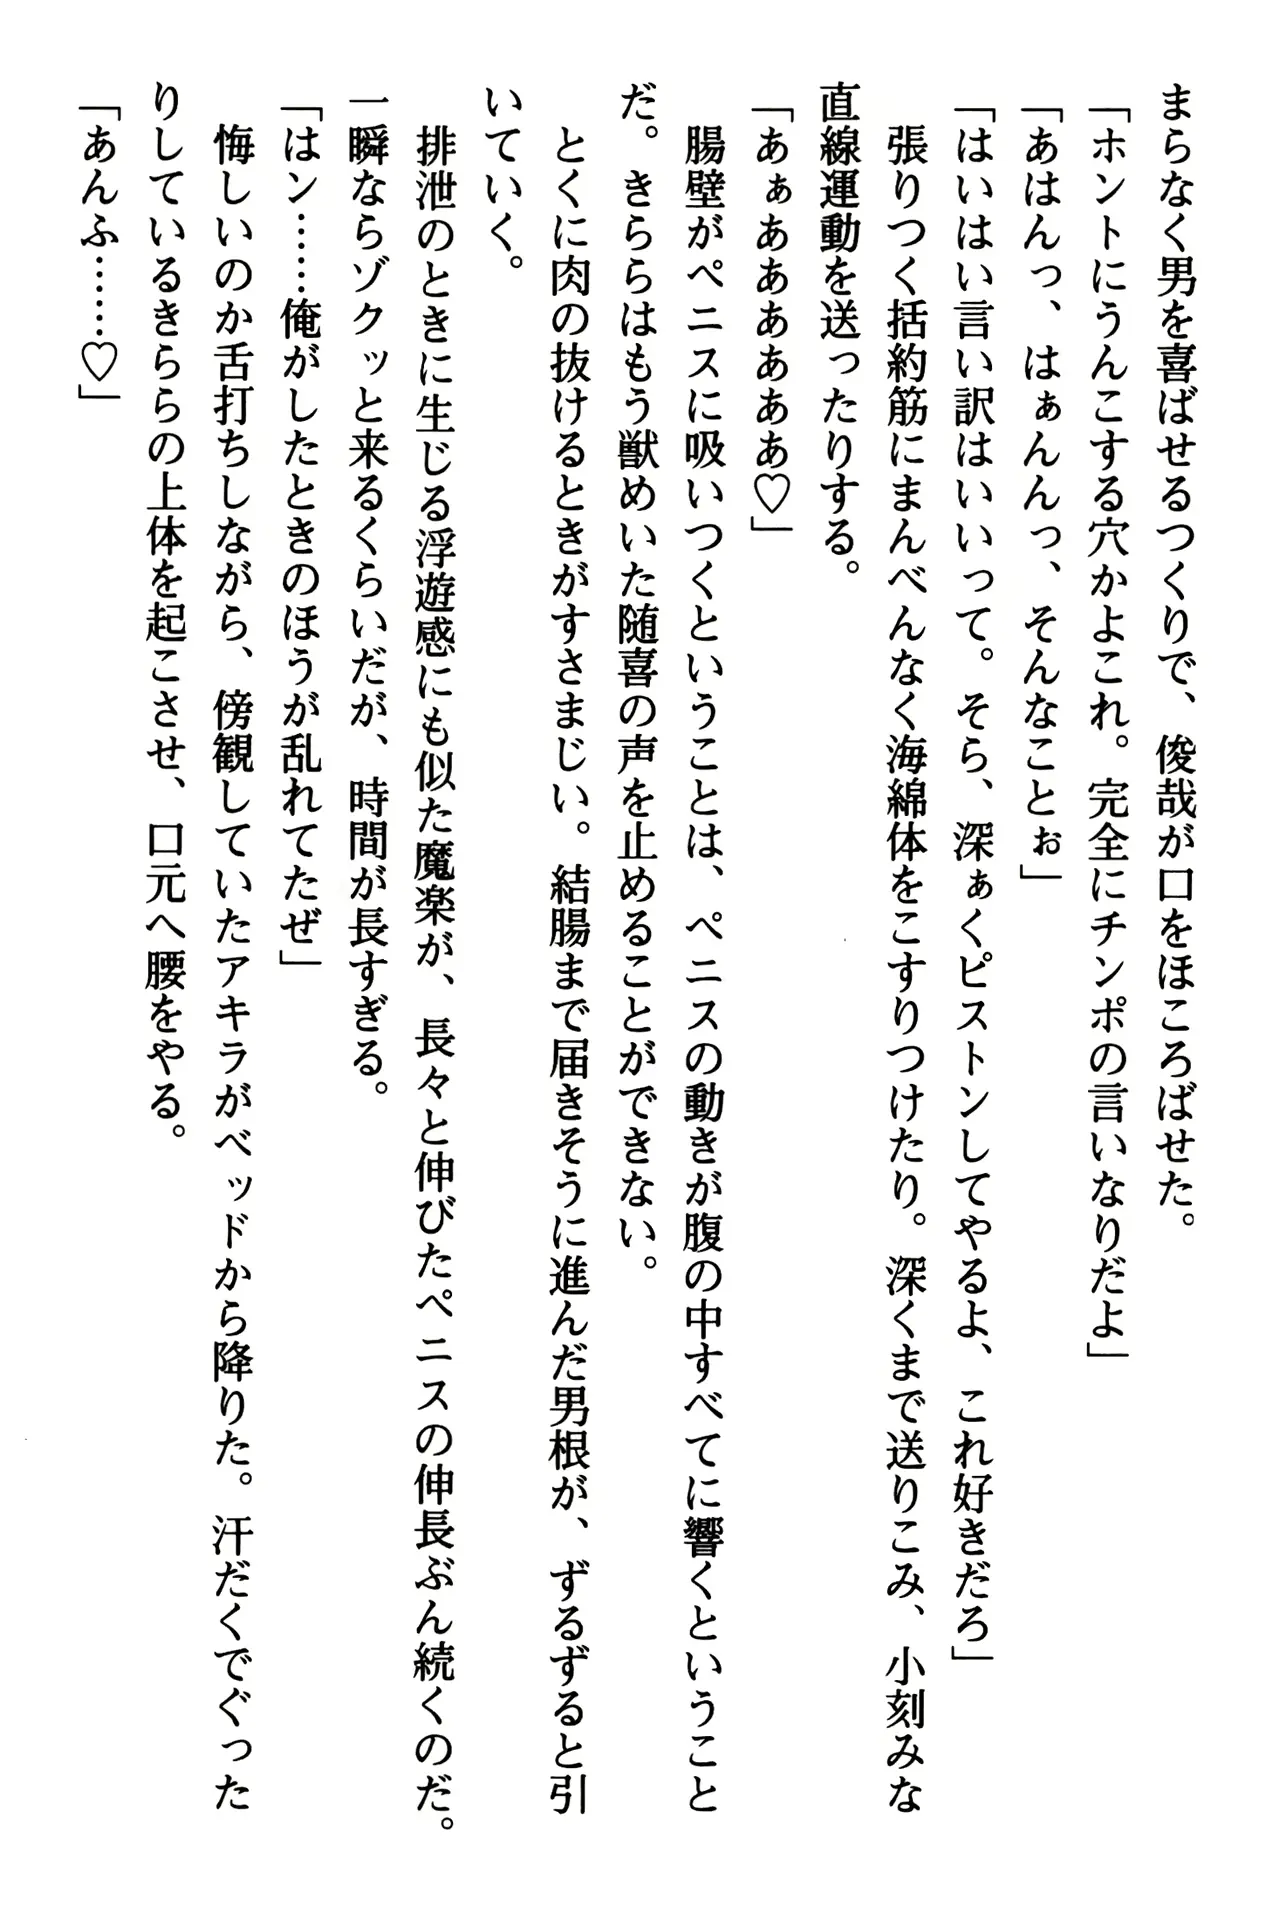 まらなく男を喜ばせるつくりで、俊哉が口をほころばせた。
「ホントにうんこする穴かよこれ。完全にチンポの言いなりだよ」
「あはんっ、はぁんんっ、そんなことぉ」
「はいはい言い訳はいいって。そら、深ぁくピストンしてやるよ、これ好きだろ」
張りつく括約筋にまんべんなく海綿体をこすりつけたり。深くまで送りこみ、小刻みな
直線運動を送ったりする。
「あぁああああああ♡」
腸壁がペニスに吸いつくということは、ペニスの動きが腹の中すべてに響くということ
だ。きららはもう獣めいた随喜の声を止めることができない。
とくに肉の抜けるときがすさまじい。結腸まで届きそうに進んだ男根が、ずるずると引
いていく。
排泄のときに生じる浮遊感にも似た魔楽が、長々と伸びたペニスの伸長ぶん続くのだ。
一瞬ならゾクッと来るくらいだが、時間が長すぎる。
「はン……俺がしたときのほうが乱れてたぜ」
悔しいのか舌打ちしながら、傍観していたアキラがベッドから降りた。汗だくでぐった
りしているきららの上体を起こさせ、口元へ腰をやる。
「あんふ……♡」